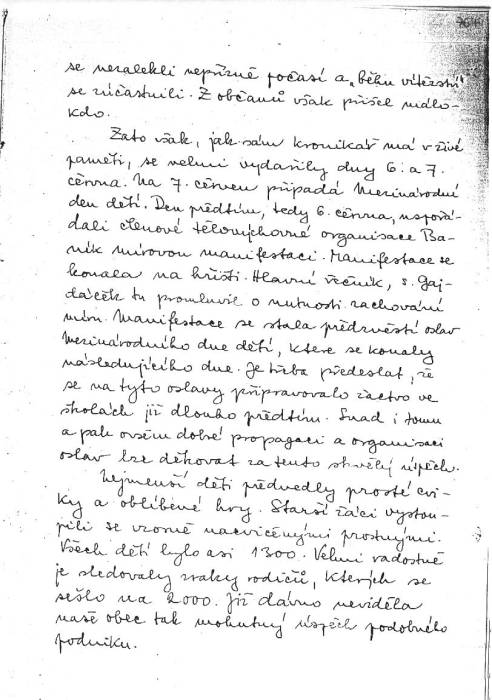 se nezalekli nepřízně počasí a „běhu vítězství"
se zúčastnili. Z občanů však přišel málo-
kdo.
Zato však, jak sám kronikář má v živé
paměti, se velmi vydařily dny 6. a 7.
června. Na 7. červen připadá Mezinárodní
den dětí. Den předtím, tedy 6. června, uspořá-
dali členové tělovýchovné organisace Ba-
ník mírovou manifestaci. Manifestace se
konala na hřišti. Hlavní řečník, s. Gaj-
dáček tu promluvil o nutnosti zachování
míru. Manifestace se stala předzvěstí oslav
Mezinárodního dne dětí, které se konaly
následujícího dne. Je třeba předeslat, že
se na tyto oslavy připravovalo žactvo ve
školách již dlouho předtím. Snad i tomu
a pak ovšem dobré propagaci a organisaci
oslav lze děkovat za tento skvělý úspěch.
Nejmenší děti předvedly prosté cvi-
ky a oblíbené hry. Starší žáci vystou-
pili se vzorně nacvičenými prostnými.
Všech dětí bylo asi 1300. Velmi radostně
je sledovaly zraky rodičů, kterých se
sešlo na 2000. Již dávno neviděla
naše obec tak mohutný úspěch podobného
podniku.